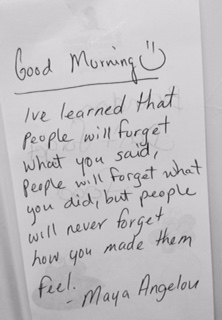 Good Morning :)
I've learned that
people will forget
what you said,
people will forget what
you did, but people
will never forget
how you made them
feel.
- Maya Angelou